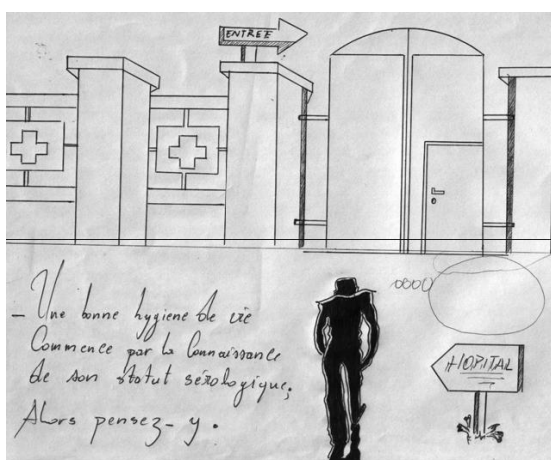 ENTREE
– Une bonne hygiene de vie
Commence par la Connaissance
de son statut sérologique;
Alors pensez-y.
HOPITAL